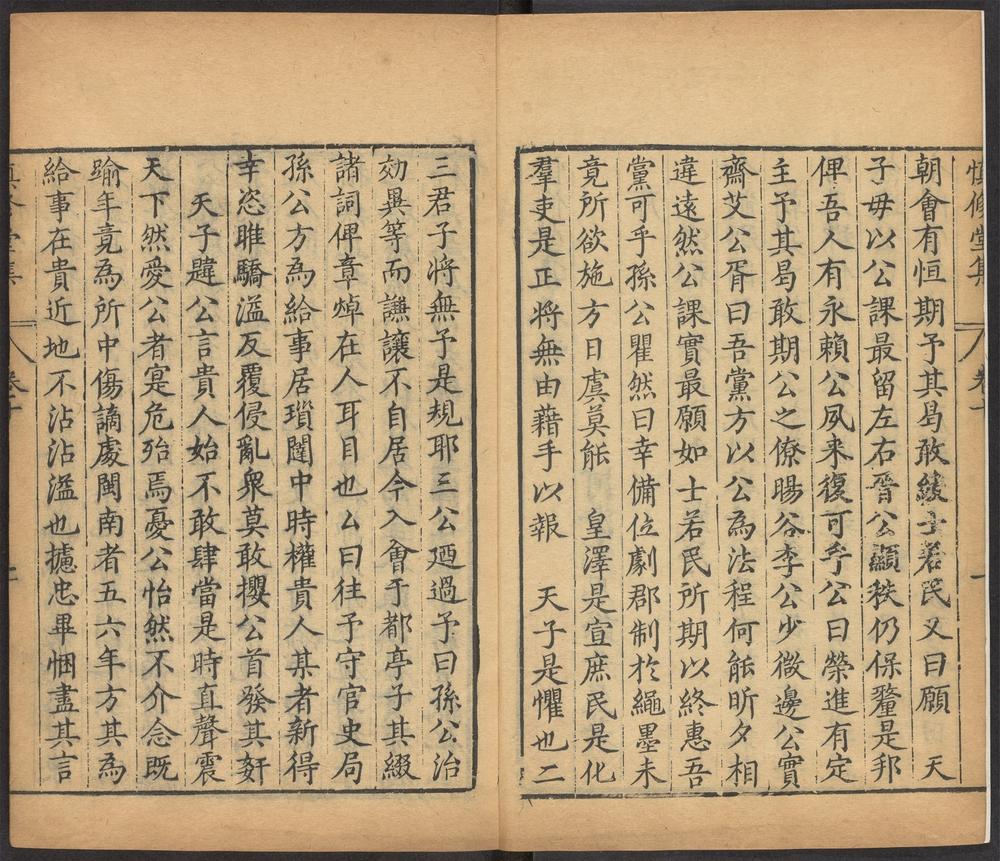 慎修堂集
卷十
一
朝會有恒期予其曷敢緩士若民又曰願　天
子毋以公課最留左右晉公顯秩仍保釐是邦
俾吾人有永賴公夙来復可乎公曰榮進有定
主予其曷敢期公之僚暘谷李公少微邊公實
齋艾公胥曰吾黨方以公為法程何能昕夕相
違遠然公課實最願如士若民所期以終惠吾
黨可乎孫公瞿然曰幸備位劇郡制於繩墨未
竟所欲施方日虞莫能　皇澤是宣庶民是化
羣吏是正将無由藉手以報　天子是懼也二
三君子将無予是規耶三公廼過予曰孫公治
効異等而謙讓不自居今入會于都亭子其綴
諸詞俾章焯在人耳目也厶曰往予守官史局
孫公方為給事居瑣闥中時權貴人某者新得
幸恣睢驕溢反覆侵亂衆莫敢攖公首發其奸
天子韙公言貴人始不敢肆當是時直聲震
天下然愛公者寔危殆焉憂公怡然不介念既
踰年竟為所中傷謫處閩南者五六年方其為
給事在貴近地不沾沾溢也攄忠畢悃盡其言